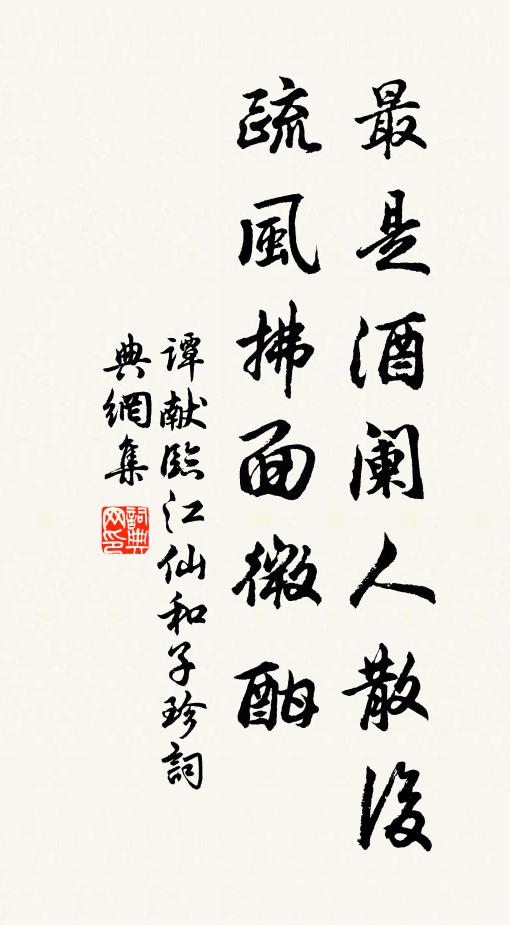 最是酒阑人散後
疏風拂面微酣
谭献臨江仙和子珍詞
典網集
詞典网印